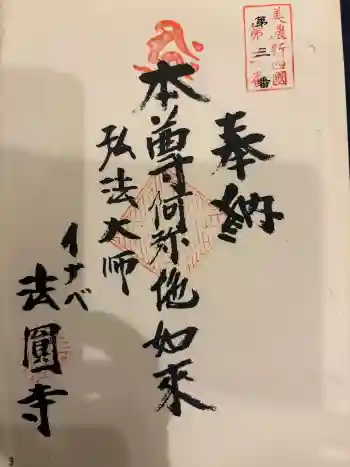 美濃新四國
第三番
奉納
本尊阿弥陀如來
弘法大師
イナベ
法圓寺
3